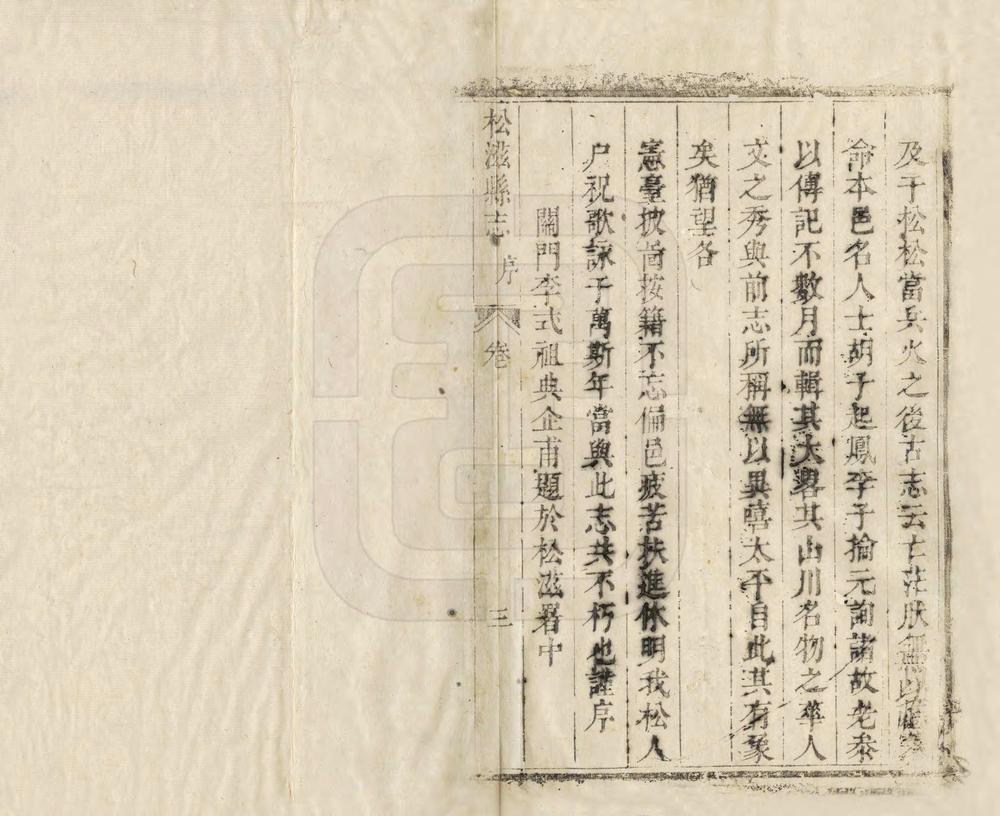 及于松松當兵火之後古志云亡茫然無以
命本邑名人士胡子起鳳李子掄元詢諸故老叅
以傳記不數月而輯其大畧其山川名物之華人
文之秀與前志所稱無以異嘻太平自此其有象
矣猶望各
憲臺披啚按籍不忘偏邑疲苦扶進休明我松人
户祝歌詠于萬斯年當與此志共不朽也謹序
關門李式祖典企甫題於松滋署中
松滋縣志 序 卷 三